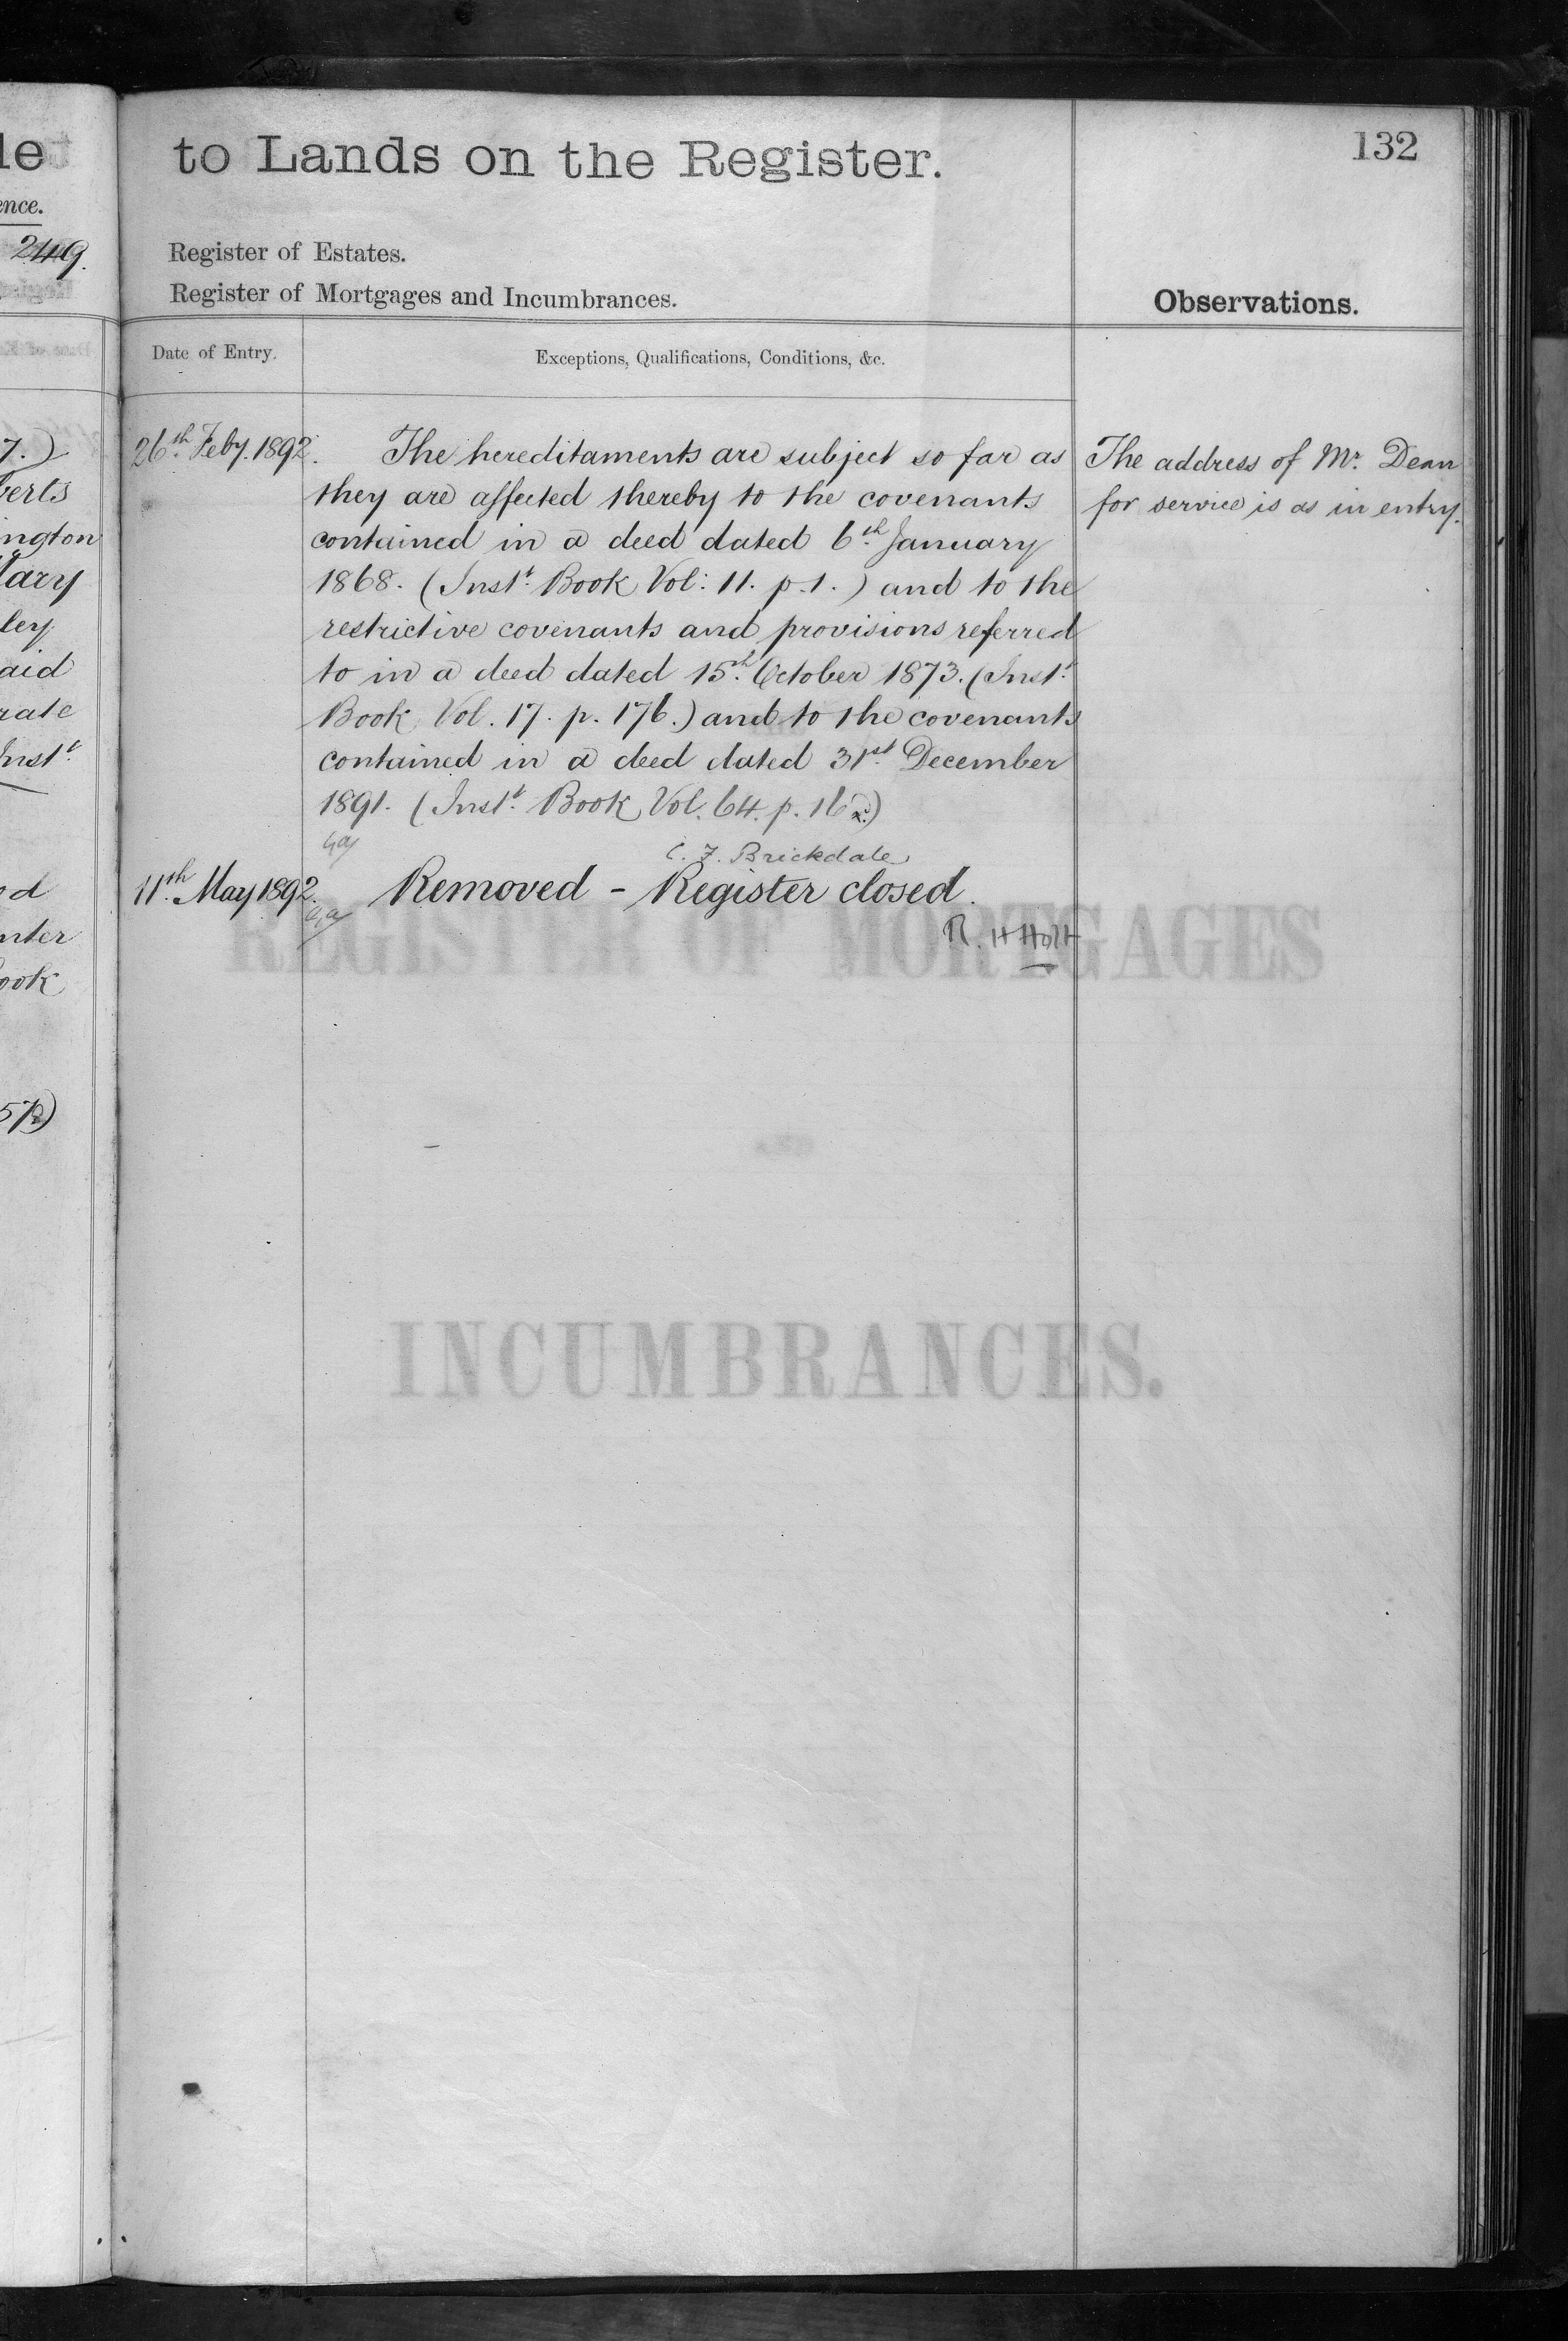 132
to Lands on the Register.
Register of Estates.
Register of Mortgages and Incumbrances.
Observations.
Date of Entry.
Exceptions, Qualifications, Conditions, &c.
26th Feby. 1892.
The hereditaments are subject so far as
they are affected thereby to the covenants
contained in a deed dated 6th January
1868. (Inst. Book Vol: 11. p. 1.) and to the
restrictive covenants and provisions referred
to in a deed dated 15th October 1873. (Inst.
Book Vol. 17. p. 176.) and to the covenants
contained in a deed dated 31st December
1891. (Inst. Book Vol. 64. p. 16
C. F. Brickdale
11th May 1892.
Removed - Register closed.
R. H Holt
The address of Mr. Dean
for service is as in entry.
REGISTER OF MORTGAGES
INCUMBRANCES.
le
ence.
249.
7.)
berts
ington
Mary
ley
aid
rate
Inst.
nter
ook